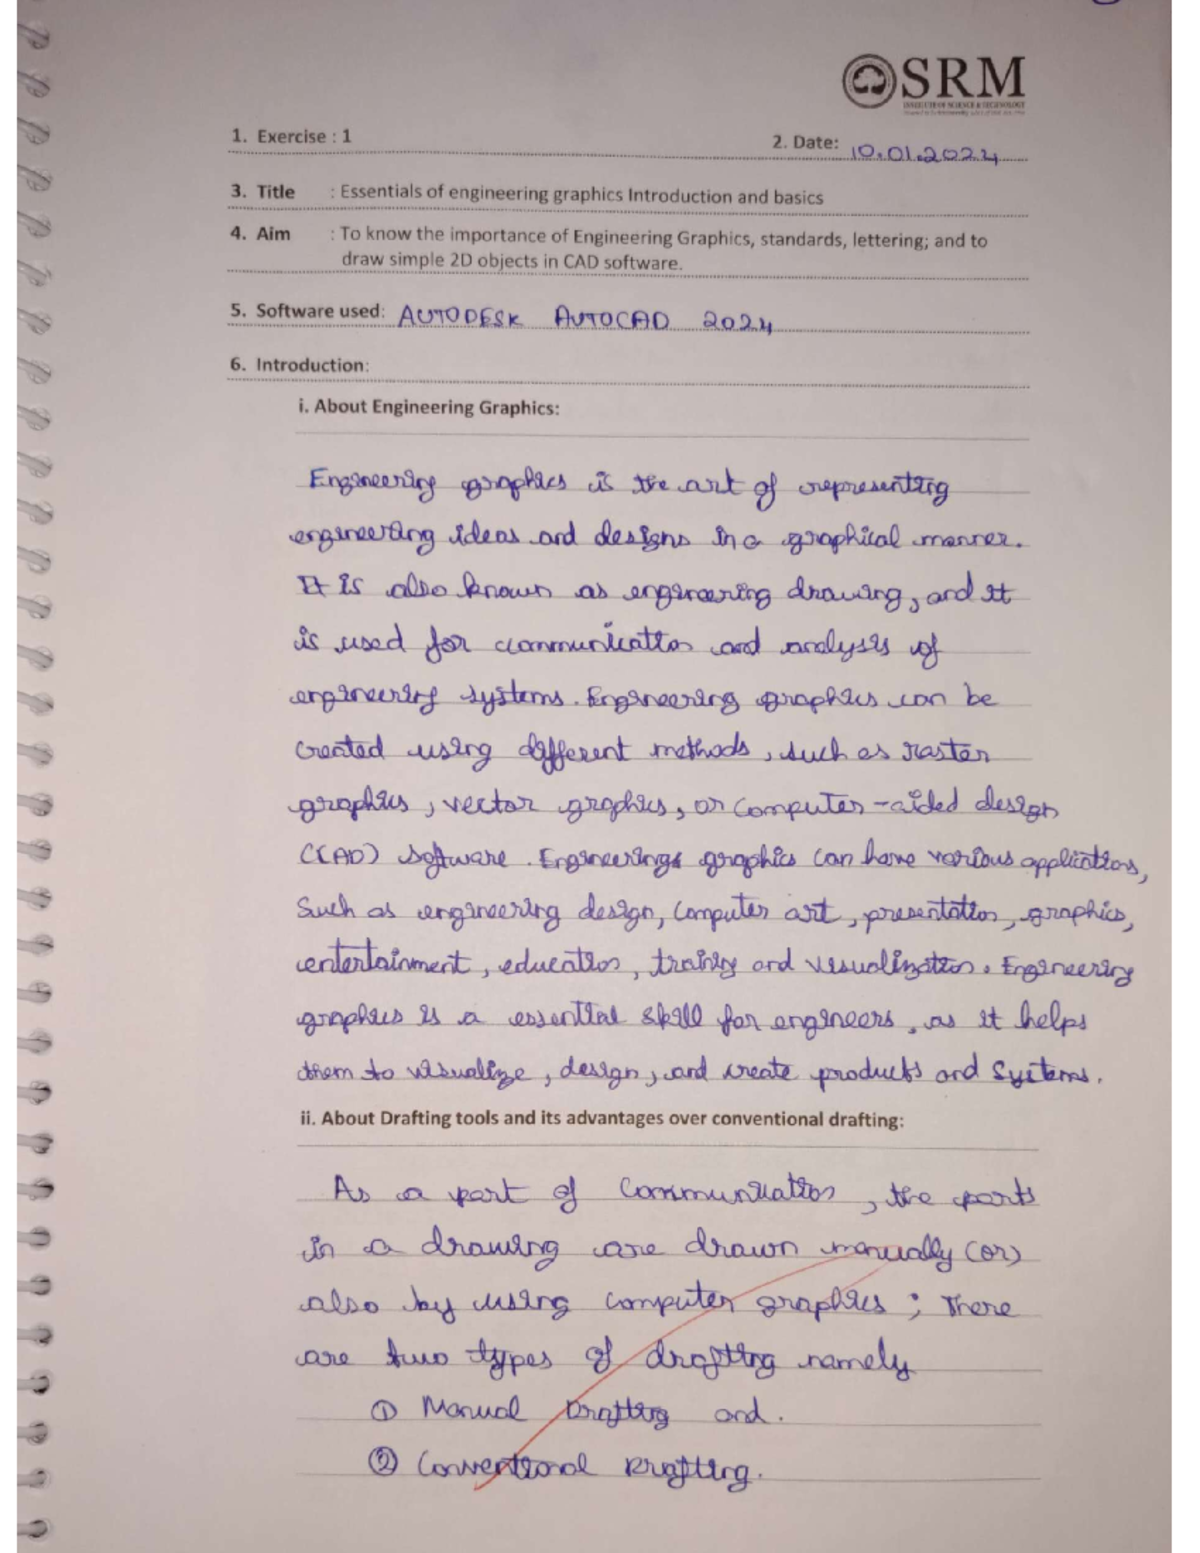 SRM
INSTITUTE OF SCIENCE & TECHNOLOGY
1. Exercise : 1
2. Date: 10.01.2024
3. Title : Essentials of engineering graphics Introduction and basics
4. Aim : To know the importance of Engineering Graphics, standards, lettering; and to
draw simple 2D objects in CAD software.
5. Software used: AUTODESK AUTOCAD 2024
6. Introduction:
i. About Engineering Graphics:
Engineering graphics is the art of representing
engineering ideas and designs in a graphical manner.
It is also known as engineering drawing, and it
is used for communication and analysis of
engineering systems. Engineering graphics can be
created using different methods, such as raster
graphics, vector graphics, or computer-aided design
(CAD) software. Engineerings graphics can have various applications,
Such as engineering design, computer art, presentation, graphics,
entertainment, education, training and visualization. Engineering
graphics is a essential skill for engineers, as it helps
them to visualize, design, and create products and systems.
ii. About Drafting tools and its advantages over conventional drafting:
As a part of communication, the parts
in a drawing are drawn manually (or)
also by using computer graphics; There
are two types of drafting namely
① Manual Drafting and.
② Conventional Drafting.